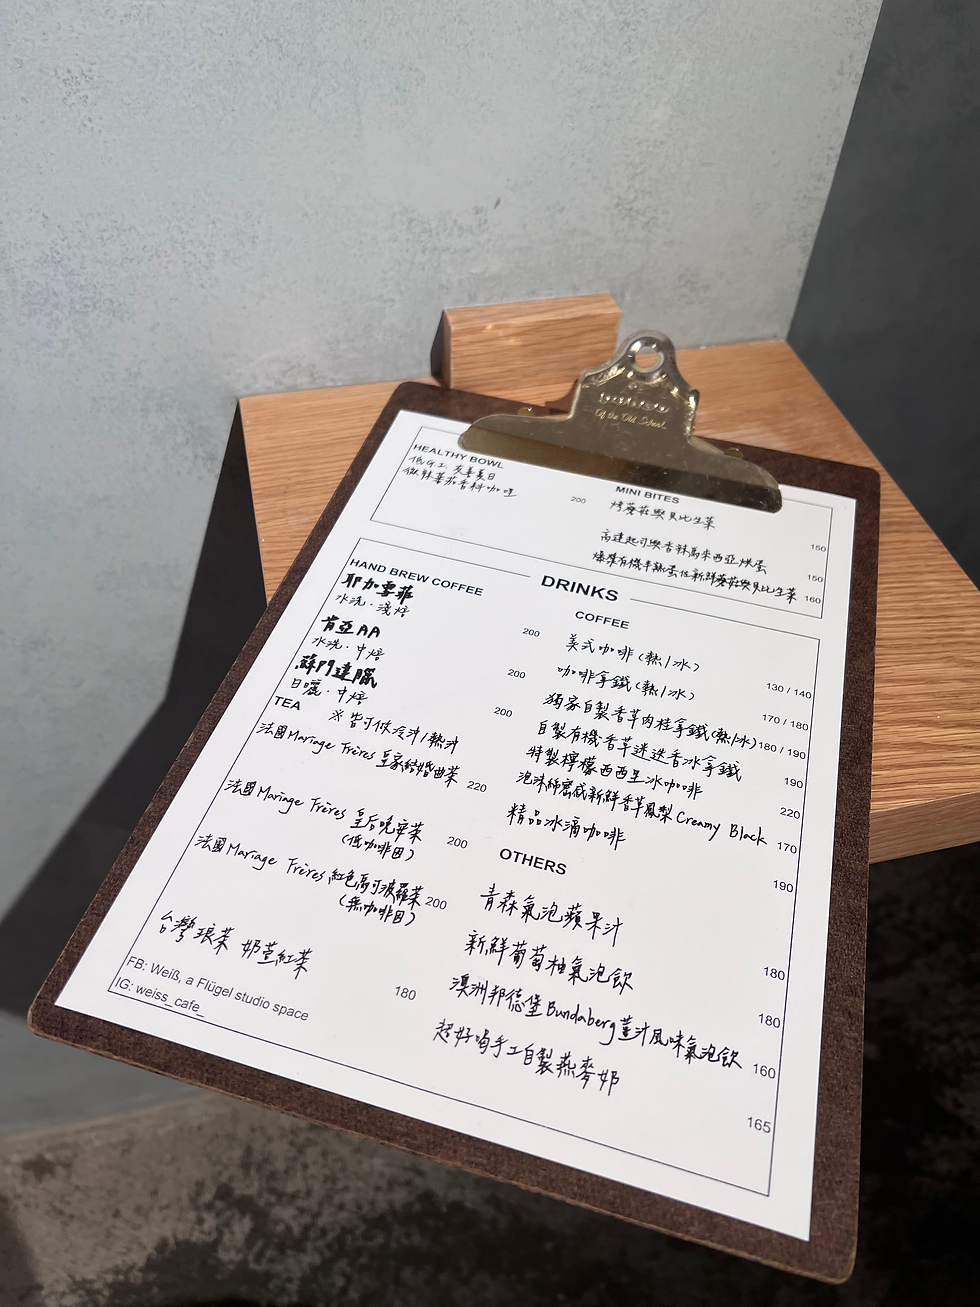 Of the Old School
HEALTHY BOWL
低G.I. 友善夏日
微辣蕃茄香料咖哩
200
MINI BITES
烤蘑菇與貝比生菜
150
高達起司與香辣馬來西亞烘蛋
150
爆漿有機半熟蛋佐新鮮蘑菇與貝比生菜
160
DRINKS
HAND BREW COFFEE
耶加雪菲
水洗·淺焙
200
肯亞AA
水洗·中焙
200
蘇門達臘
日曬·中焙
200
※皆可做冷汁/熱汁
TEA
法國Mariage Frères 皇家結婚曲茶
220
法國Mariage Frères 皇后晚宴茶
(低咖啡因)
200
法國Mariage Frères 紅色馬可波羅茶
(無咖啡因)
200
台灣琅茶 奶萱紅茶
180
FB: Weiß, a Flügel studio space
IG: weiss_cafe_
COFFEE
美式咖啡(熱/冰)
130 / 140
咖啡拿鐵(熱/冰)
170 / 180
獨家自製香草肉桂拿鐵(熱/冰)
180 / 190
自製有機香草迷迭香冰拿鐵
190
特製檸檬西西里冰咖啡
220
泡沫綿密感新鮮香草鳳梨Creamy Black
170
精品冰滴咖啡
190
OTHERS
青森氣泡蘋果汁
180
新鮮葡萄柚氣泡飲
180
澳洲邦德堡Bundaberg薑汁風味氣泡飲
160
超好喝手工自製燕麥奶
165